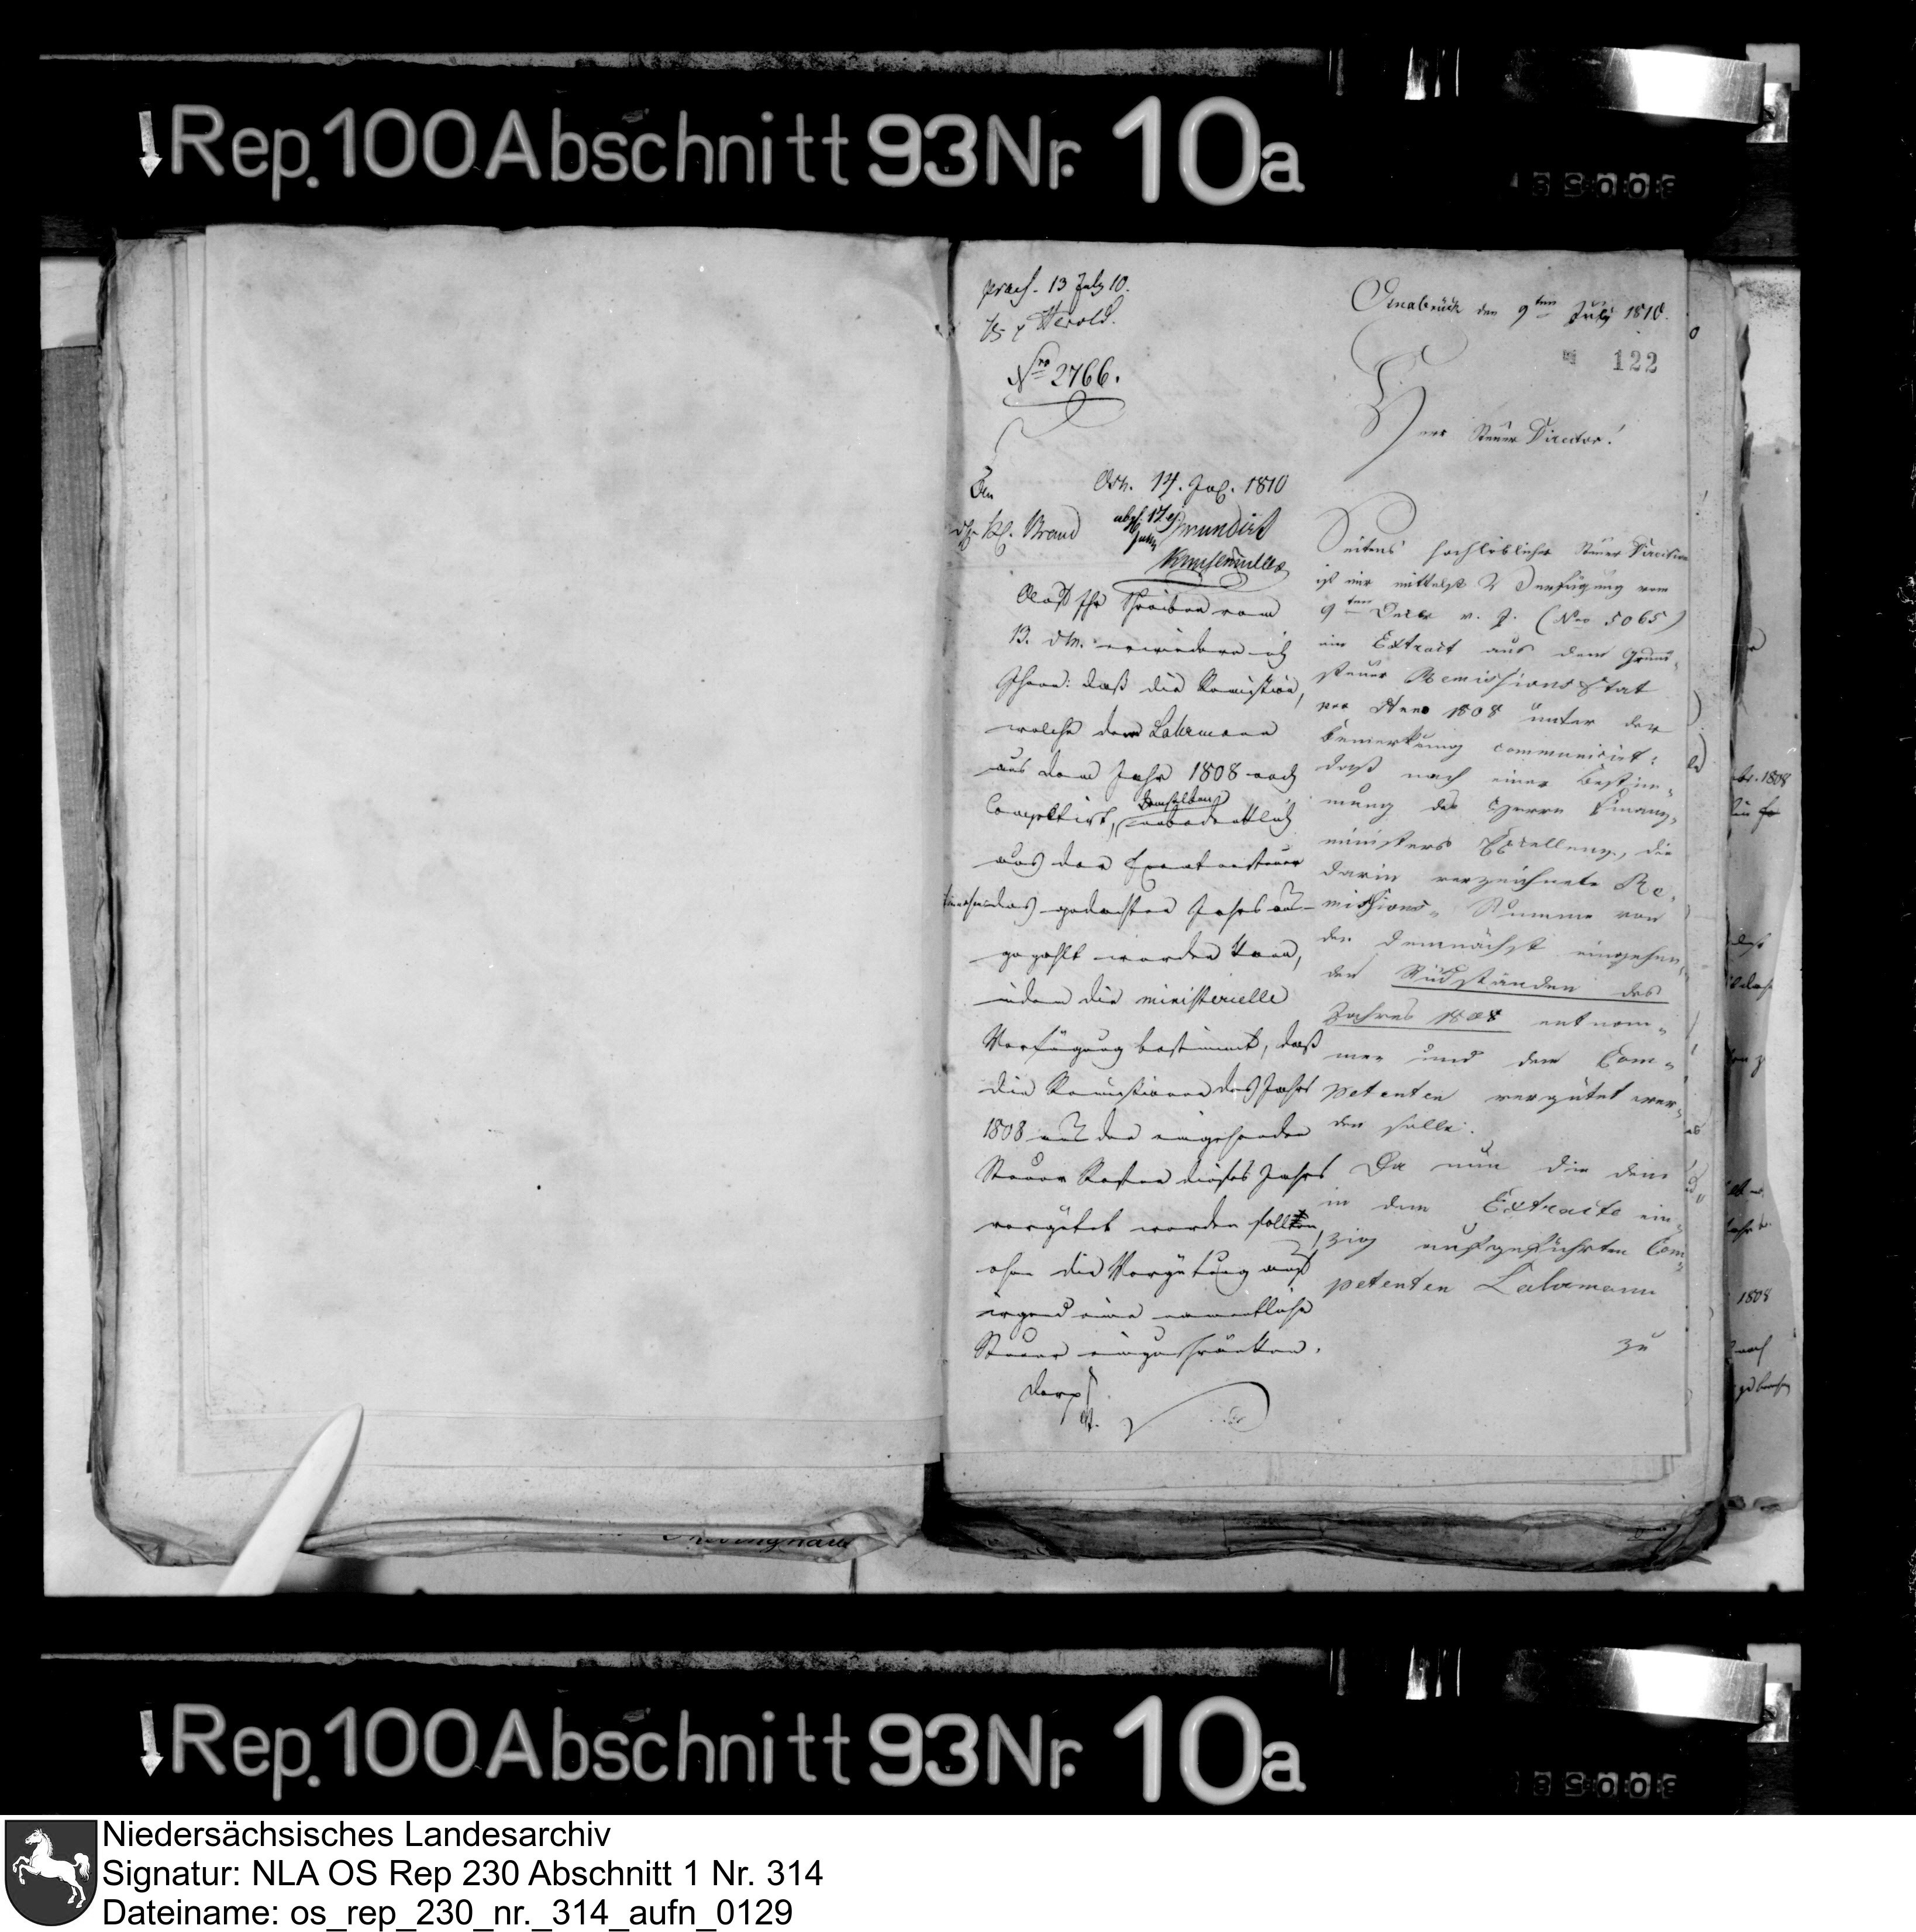 Rep. 100 Abschnitt 93 Nr. 10a
praes. 13 July 10.
Herold.
Nro 2766.
Osn. 14. Jul. 1810
An
Brand
mundirt
Auf Ihr Schreiben vom
13. d. M. erwiedere ich
Ihnen: daß die Remission,
welche dem Lahrmann
aus dem Jahr 1808 noch
competirt, demselben unbedenklich
aus den
des gedachten Jahrs aus-
gezahlt werden kann,
indem die ministerielle
Verfügung bestimmt, daß
die Remissionen des Jahrs
1808 aus den eingehenden
Steuer Resten dieses Jahrs
vergütet werden sollen,
ohne die Vergütung auf
irgend eine namentliche
Steuer einzuschränken.
Osnabrück den 9ten July 1810.
122
Herr Steuer Director!
Seitens hochlöblicher Steuer Direction
ist mir mittelst Verfügung vom
9ten Decbr v. J. (Nro 5065)
ein Extract aus dem Grund-
steuer Remissions Etat
pro Anno 1808 unter der
Bemerkung communicirt:
daß nach einer Bestim-
mung des Herrn Finanz-
ministers Excellenz, die
darin verzeichnete Re-
missions- Summe von
den demnächst eingehen-
den Rückständen des
Jahres 1808 entnom-
men und dem Com-
petenten vergütet wer-
den solle.
Da nun die dem
in dem Extracte ein-
zig aufgeführten Com-
petenten Lahrmann
zu
Rep. 100 Abschnitt 93 Nr. 10a
Niedersächsisches Landesarchiv
Signatur: NLA OS Rep 230 Abschnitt 1 Nr. 314
Dateiname: os_rep_230_nr._314_aufn_0129